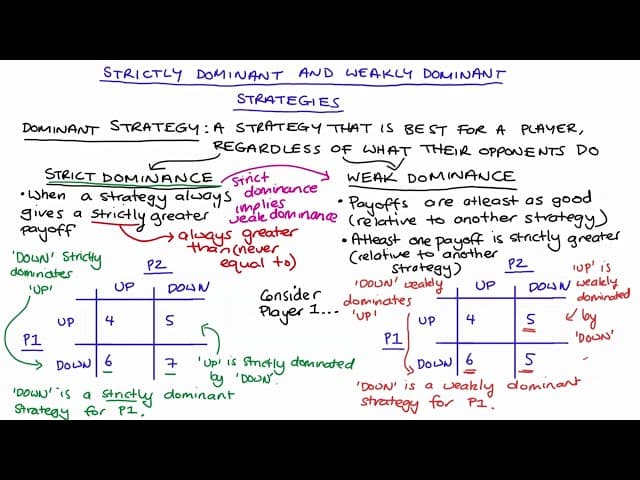 STRICTLY DOMINANT AND WEAKLY DOMINANT
STRATEGIES
DOMINANT STRATEGY: A STRATEGY THAT IS BEST FOR A PLAYER,
REGARDLESS OF WHAT THEIR OPPONENTS DO
STRICT DOMINANCE
• When a strategy always
gives a strictly greater
payoff
strict
dominance
implies
weak dominance
always greater
than (never
equal to)
WEAK DOMINANCE
• Payoffs are atleast as good
(relative to another strategy)
• Atleast one payoff is strictly greater
(relative to another
strategy)
'DOWN' strictly
dominates
'UP'
P2
UP DOWN
P1
UP 4 5
DOWN 6 7
'UP' is strictly dominated
by 'DOWN'
'DOWN' is a strictly dominant
strategy for P1.
Consider
Player 1...
'DOWN' weakly
dominates
'UP'
P2
UP DOWN
P1
UP 4 5
DOWN 6 5
'UP' is
weakly
dominated
by
'DOWN'
'DOWN' is a weakly dominant
strategy for P1.